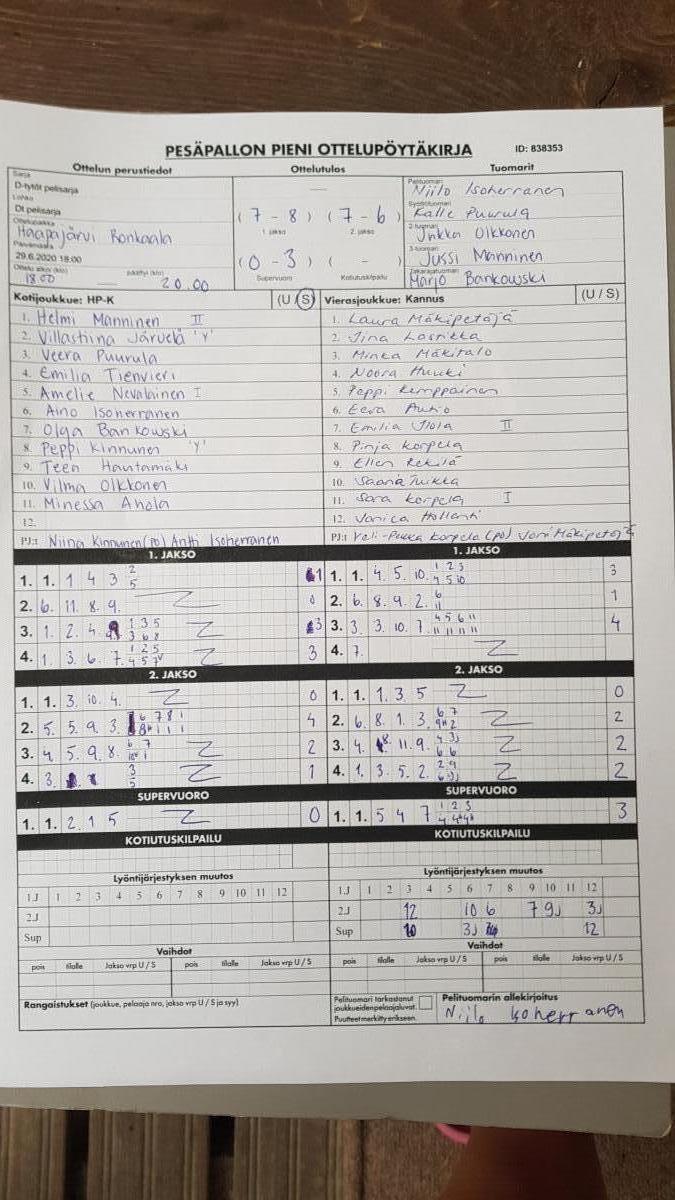 PESÄPALLON PIENI OTTELUPÖYTÄKIRJA ID: 838353
Ottelun perustiedot Ottelutulos Tuomarit
Sarja
D-tytöt pelisarja
Lohko
Dt pelisarja
Ottelupaikka
Haapajärvi Ronkaala
Päivämäärä
29.6.2020 18:00
18.00 20.00
(7 - 8) (7 - 6)
1. jakso 2. jakso
(0 - 3) ( - )
Supervuoro Kotiutuskilpailu
Pelituomari
Niilo Isoherranen
Syöttötuomari
Kalle Puurula
2-tuomari
Jukka Olkkonen
3-tuomari
Jussi Manninen
Takarajatuomari
Marjo Bankowski
Kotijoukkue: HP-K (U / S) Vierasjoukkue: Kannus (U / S)
1. Helmi Manninen II
2. Villastiina Järvelä 'V'
3. Veera Puurula
4. Emilia Tienvieri
5. Amelie Nevalainen I
6. Aino Isoherranen
7. Olga Bankowski
8. Peppi Kinnunen 'V'
9. Teen Hautamäki
10. Vilma Olkkonen
11. Minessa Ahola
12.
PJ:t Niina Kinnunen (po) Antti Isoherranen
1. Laura Mäkipetäjä
2. Iina
3. Minka Mäkitalo
4. Noora Huuki
5. Peppi Kemppainen
6. Eeva
7. Emilia II
8. Pinja Korpela
9. Ellen Rekilä
10. Saana Tuikka
11. Sara Korpela I
12. Janica
PJ:t Veli-Pekka Korpela (po) Joni Mäkipetäjä
1. JAKSO 1. JAKSO
1. 1. 1 4 3 2 5 1
2. 6. 11. 8. 9. 0
3. 1. 2. 4. 1 3 5 3 6 8 3
4. 1. 3. 6. 7. 1 2 5 4 5 7 3
1. 1. 4. 5. 10. 1 2 3 4 5 10 3
2. 6. 8. 9. 2. 6 11 1
3. 3. 3. 10. 7. 4 5 6 11 11 11 11 11 4
4. 7.
2. JAKSO 2. JAKSO
1. 1. 3. 10. 4. 0
2. 5. 5. 9. 3. 6 7 8 1 4
3. 4. 5. 9. 8. 6 7 2
4. 3. 3 5 1
1. 1. 1. 3 5 0
2. 6. 8. 1. 3. 6 7 2
3. 4. 11. 9. 2
4. 1. 3. 5. 2. 2
SUPERVUORO SUPERVUORO
1. 1. 2 1 5 0
1. 1. 5 4 7 1 2 3 3
KOTIUTUSKILPAILU KOTIUTUSKILPAILU
Lyöntijärjestyksen muutos
1.J 1 2 3 4 5 6 7 8 9 10 11 12
2.J
Sup
Lyöntijärjestyksen muutos
1.J 1 2 3 4 5 6 7 8 9 10 11 12
2.J 12 10 6 7 9J 3J
Sup 10 3J 12
Vaihdot Vaihdot
pois tilalle Jakso vrp U / S pois tilalle Jakso vrp U / S
pois tilalle Jakso vrp U / S pois tilalle Jakso vrp U / S
Rangaistukset (joukkue, pelaaja nro, jakso vrp U / S ja syy)
Pelituomari tarkastanut
joukkueiden pelaajaluvat.
Puutteet merkitty erikseen.
Pelituomarin allekirjoitus
Niilo Isoherranen